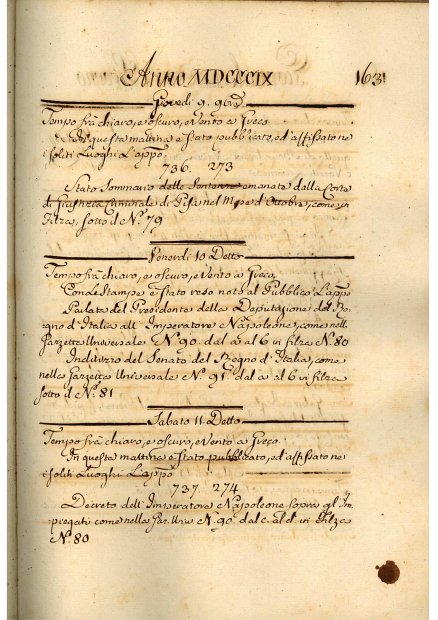 ANNO MDCCCIX 163
Giovedì 9. 9bre
Tempo frà chiaro, e oscuro, e Vento a Greco
In questa mattina è stato pubblicato, ed affissato ne
i soliti Luoghi L'app.o
736. 273
Stato Sommario delle Sentenze emanate dalla Corte
di Giustizia Criminale di Pisa nel Mese d'Ottobre, come in
Filza, sotto il N.o 79
Venerdì 10 Detto
Tempo frà chiaro, e oscuro, e Vento a Greco,
Con le Stampe è stato reso noto al Pubblico L'app.o
Parlata del Presidente della Deputazione del Re-
gno d'Italia all'Imperatore Napoleone, come nella
Gazzetta Universale N.o 90. dal a al 6 in filza N. 80
Indirizzo del Senato del Regno d'Italia, come
nella Gazzetta Universale N.o 91. dal a al 6 in filza
sotto il N.o 81
Sabato 11. Detto
Tempo frà chiaro, e oscuro, e Vento a Greco.
In questa mattina è stato pubblicato, ed affissato ne
i soliti Luoghi L'app.o
737. 274
Decreto dell'Imperatore Napoleone sopra gl'Im-
piegati come nella Gaz. Univ. N. 90. dal c. al d. in Filza
N.o 80